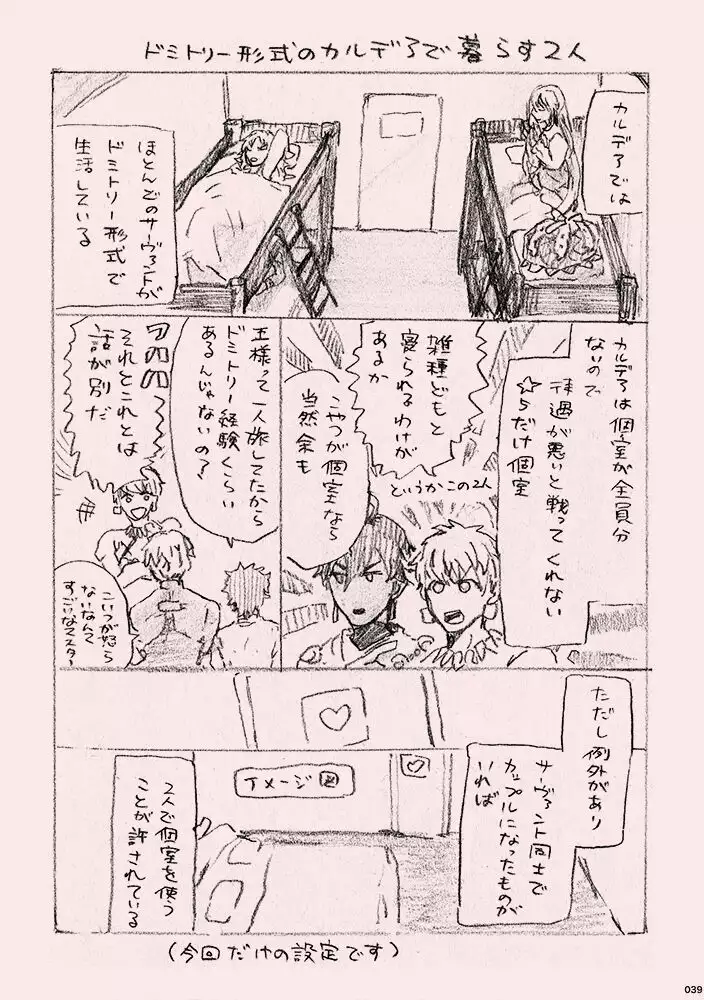 ドミトリー形式のカルデアで暮らす2人
カルデアでは
ほとんどの
サーヴァントが
ドミトリー形式で
生活している
カルデアは個室が全員分
ないので
待遇が悪いと戦ってくれない
☆5だけ個室
雑種どもと
寝られるわけが
あるか
というかこの2人
こやつが個室なら
当然余も
王様って一人旅してたから
ドミトリー経験くらい
あるんじゃないの?
アハハハ
それとこれとは
話が別だ
こいつが怒ら
ないなんて
すごいなマスター
ただし例外があり
サーヴァント同士で
カップルになったものが
いれば
イメージ図
2人で個室を使う
ことが許されている
(今回だけの設定です)
039